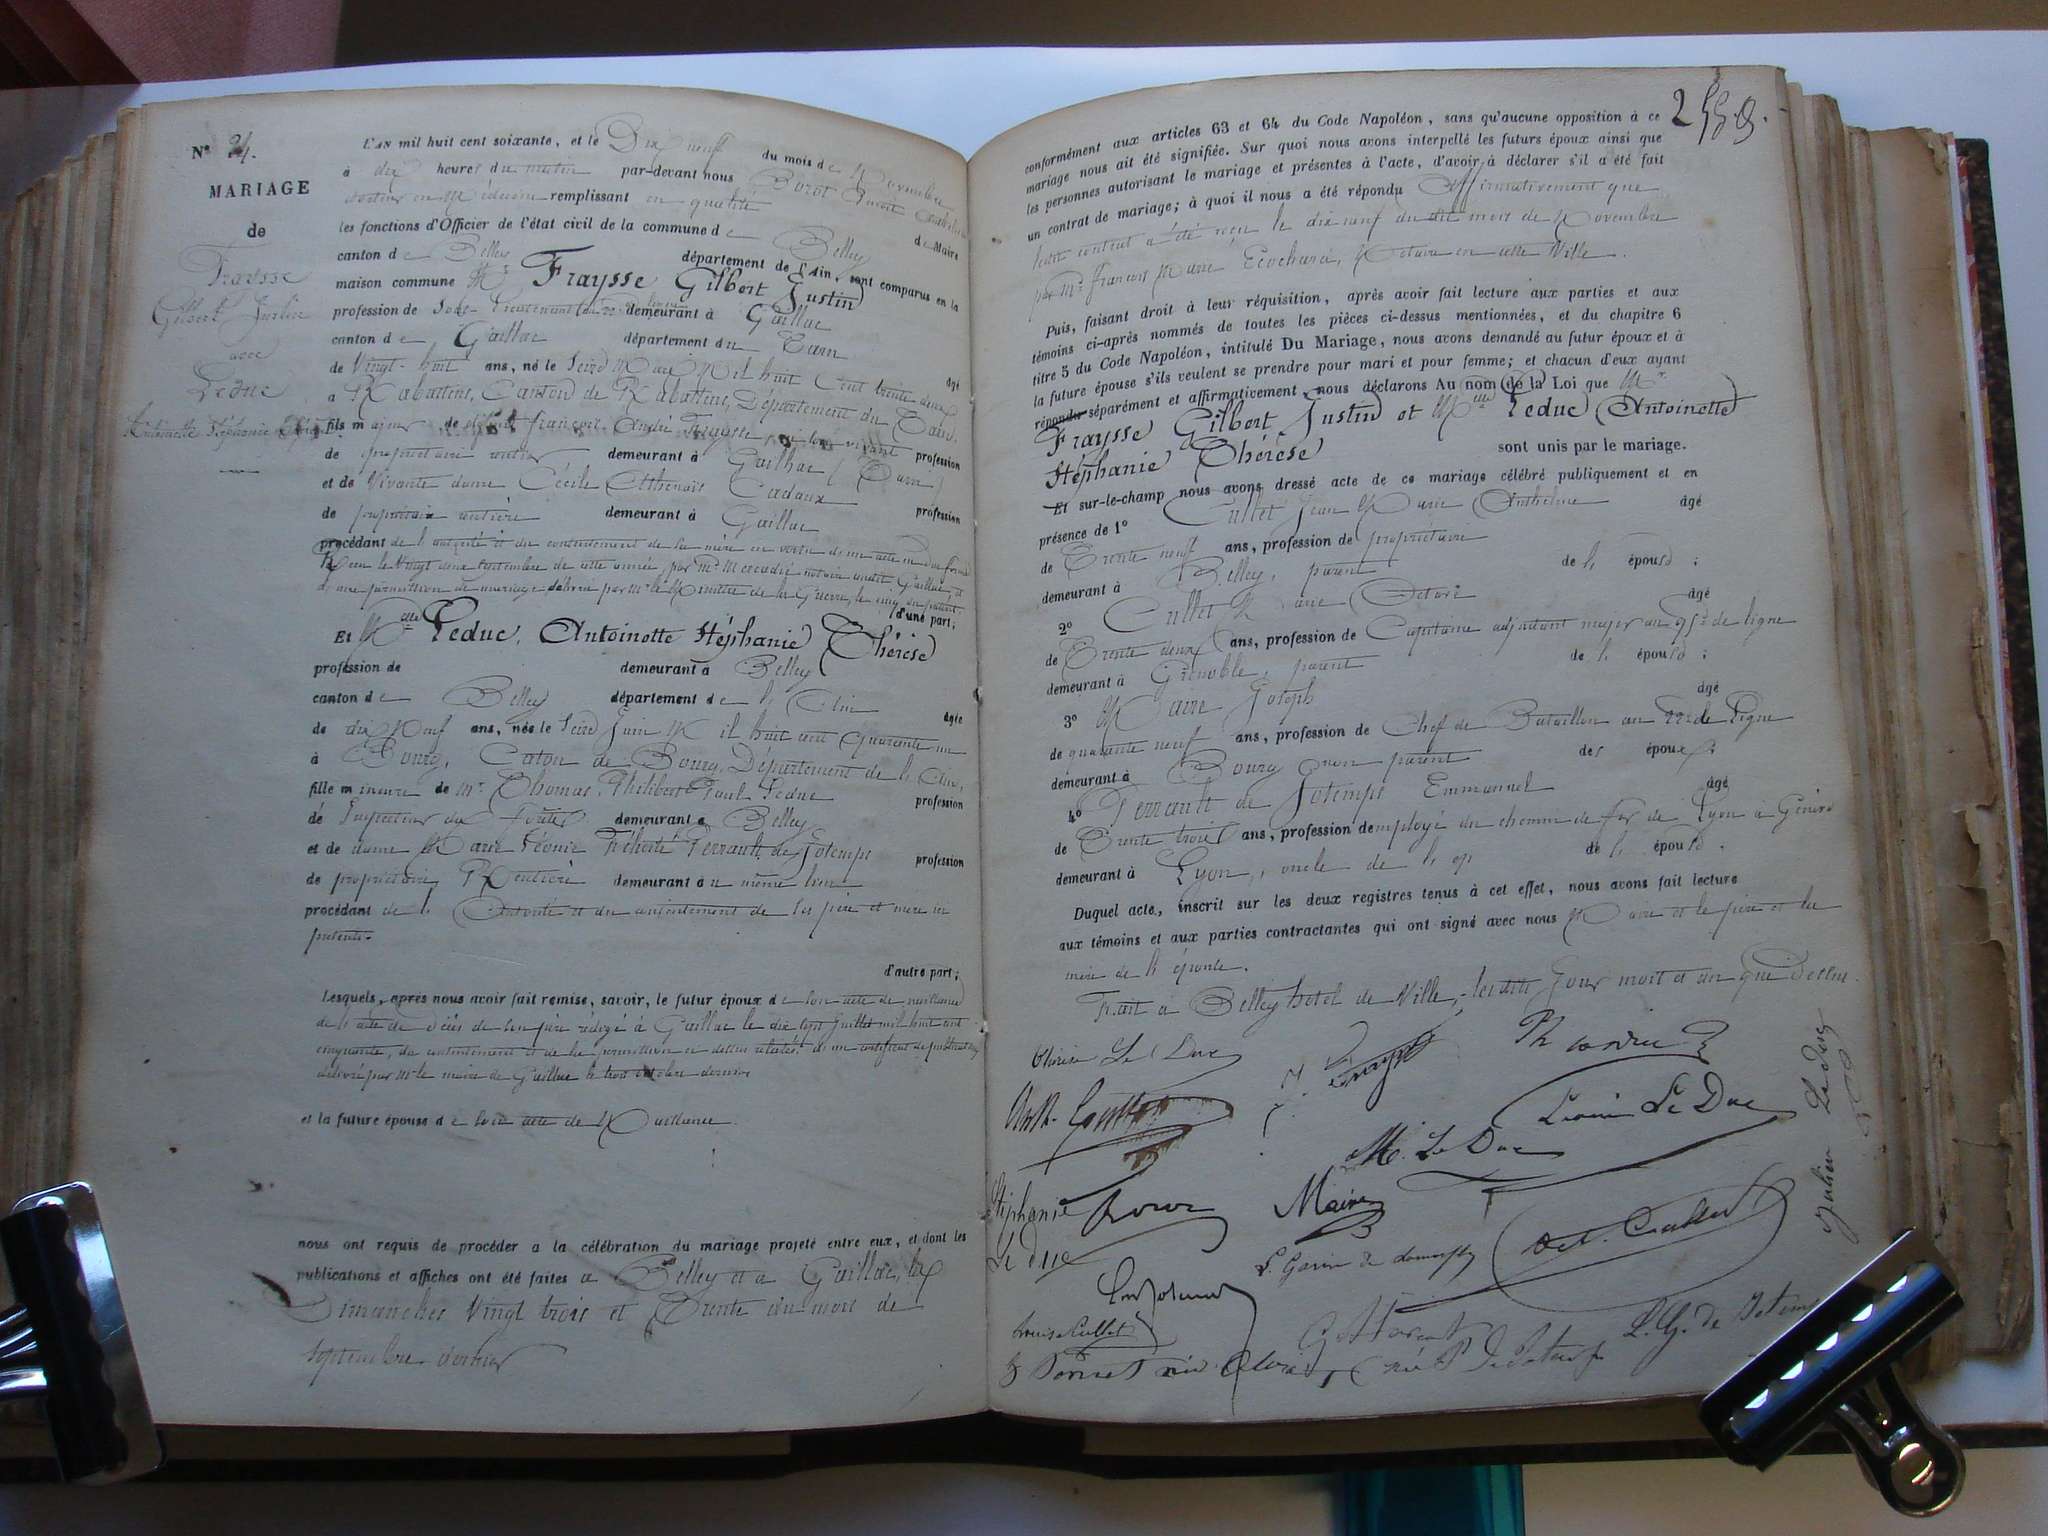 N° 24.
MARIAGE
de
Fraysse
Gilbert Justin
avec
Leduc
Antoinette Stéphanie Thérèse
L'AN mil huit cent soixante, et le Dix neuf du mois de Novembre
à dix heures du matin par-devant nous
docteur en Médecin remplissant en qualité de Maire
les fonctions d'Officier de l'état civil de la commune de Belley
canton de Belley département de l'Ain, sont comparus en la
maison commune Mr Fraysse Gilbert Justin
profession de Sous-Lieutenant au demeurant à Gaillac
canton de Gaillac département du Tarn âgé
de Vingt-huit ans, né le Seize Mai Mil huit Cent trente deux
a Rabastens, Canton de Rabastens, Département du Tarn,
fils majeur de défunt françois André Fraysse, en son vivant profession
de propriétaire rentier demeurant à Gailhac (Tarn)
et de Vivante dame Cécile Athenaïs Cadaux profession
de propriétaire rentière demeurant à Gaillac
procédant de l'autorité et du consentement de sa mère en vertu d'un acte en due forme
Reçu le Vingt deux Septembre de cette année, par Me Mercadié notaire audit Gaillac, et
d'une permission de mariage délivrée par Mr le Ministre de la Guerre, le cinq du présent.
d'une part;
Et Mlle Leduc, Antoinette Stéphanie Thérèse
profession de demeurant à Belley
canton de Belley département de l'Ain âgée
de dix Neuf ans, née le Seize Juin Mil huit cent Quarante un
à Bourg, Caton de Bourg, Département de l'Ain,
fille mineure de Mr Thomas Philibert Paul Leduc profession
de Inspecteur des Forêts demeurant à Belley
et de dame Marie Léonie Félicité Perrault de Jotemps profession
de propriétaire Rentière demeurant au même lieu
procédant de l'Autorité et du consentement de ses père et mère ici
présents.
d'autre part;
Lesquels, après nous avoir fait remise, savoir, le futur époux de son acte de naissance
de l'acte de Décès de son père rédigé à Gaillac le dix sept Juillet mil huit cent
cinquante, du consentement et de la permission ci dessus relatés. et un certificat de publication
délivré par Mr le maire de Gaillac le trois octobre dernier
et la future épouse de son acte de Naissance.
nous ont requis de procéder a la célébration du mariage projeté entre eux, et dont les
publications et affiches ont été faites a Belley et a Gaillac, les
Dimanches Vingt trois et Trente du mois de
septembre dernier
conformément aux articles 63 et 64 du Code Napoléon, sans qu'aucune opposition à ce
mariage nous ait été signifiée. Sur quoi nous avons interpellé les futurs époux ainsi que
les personnes autorisant le mariage et présentes à l'acte, d'avoir à déclarer s'il a été fait
un contrat de mariage; à quoi il nous a été répondu Affirmativement que
leur contrat a été reçu le dix neuf du dit mois de Novembre
par Me françois Marie Ecochard, Notaire en cette Ville.
Puis, faisant droit à leur réquisition, après avoir fait lecture aux parties et aux
témoins ci-après nommés de toutes les pièces ci-dessus mentionnées, et du chapitre 6
titre 5 du Code Napoléon, intitulé Du Mariage, nous avons demandé au futur époux et à
la future épouse s'ils veulent se prendre pour mari et pour femme; et chacun d'eux ayant
répondu séparément et affirmativement, nous déclarons Au nom de la Loi que Mr
Fraysse Gilbert Justin et Mlle Leduc (Antoinette)
Stéphanie Thérèse sont unis par le mariage.
Et sur-le-champ nous avons dressé acte de ce mariage célébré publiquement et en
présence de 1° Cullet Jean Marie Anthelme âgé
de Trente neuf ans, profession de propriétaire
demeurant à Belley, parent de l'épouse;
2° Cullet Marie Octave âgé
de Trente deux ans, profession de Capitaine adjudant major au 95e de ligne
demeurant à Grenoble, parent de l'épouse;
3° Maire Joseph âgé
de quarante neuf ans, profession de Chef de Bataillon au 22e de Ligne
demeurant à Bourg non parent des époux;
4° Perrault de Jotemps Emmanuel âgé
de Trente trois ans, profession de employé du chemin de fer de Lyon à Genève
demeurant à Lyon, oncle de l'ép de l'épouse.
Duquel acte, inscrit sur les deux registres tenus à cet effet, nous avons fait lecture
aux témoins et aux parties contractantes qui ont signé avec nous Maire et le père et la
mère de l'épouse.
Fait a Belley hotel de Ville, lesdits Jour mois et an que dessus.
Thérèse Le Duc
Léonie Le Duc
M. Le Duc
Julien Le Duc
Stéphanie
Le duc
Maire
Oct. Cullet
Louise Cullet
L. G. de Jotemps